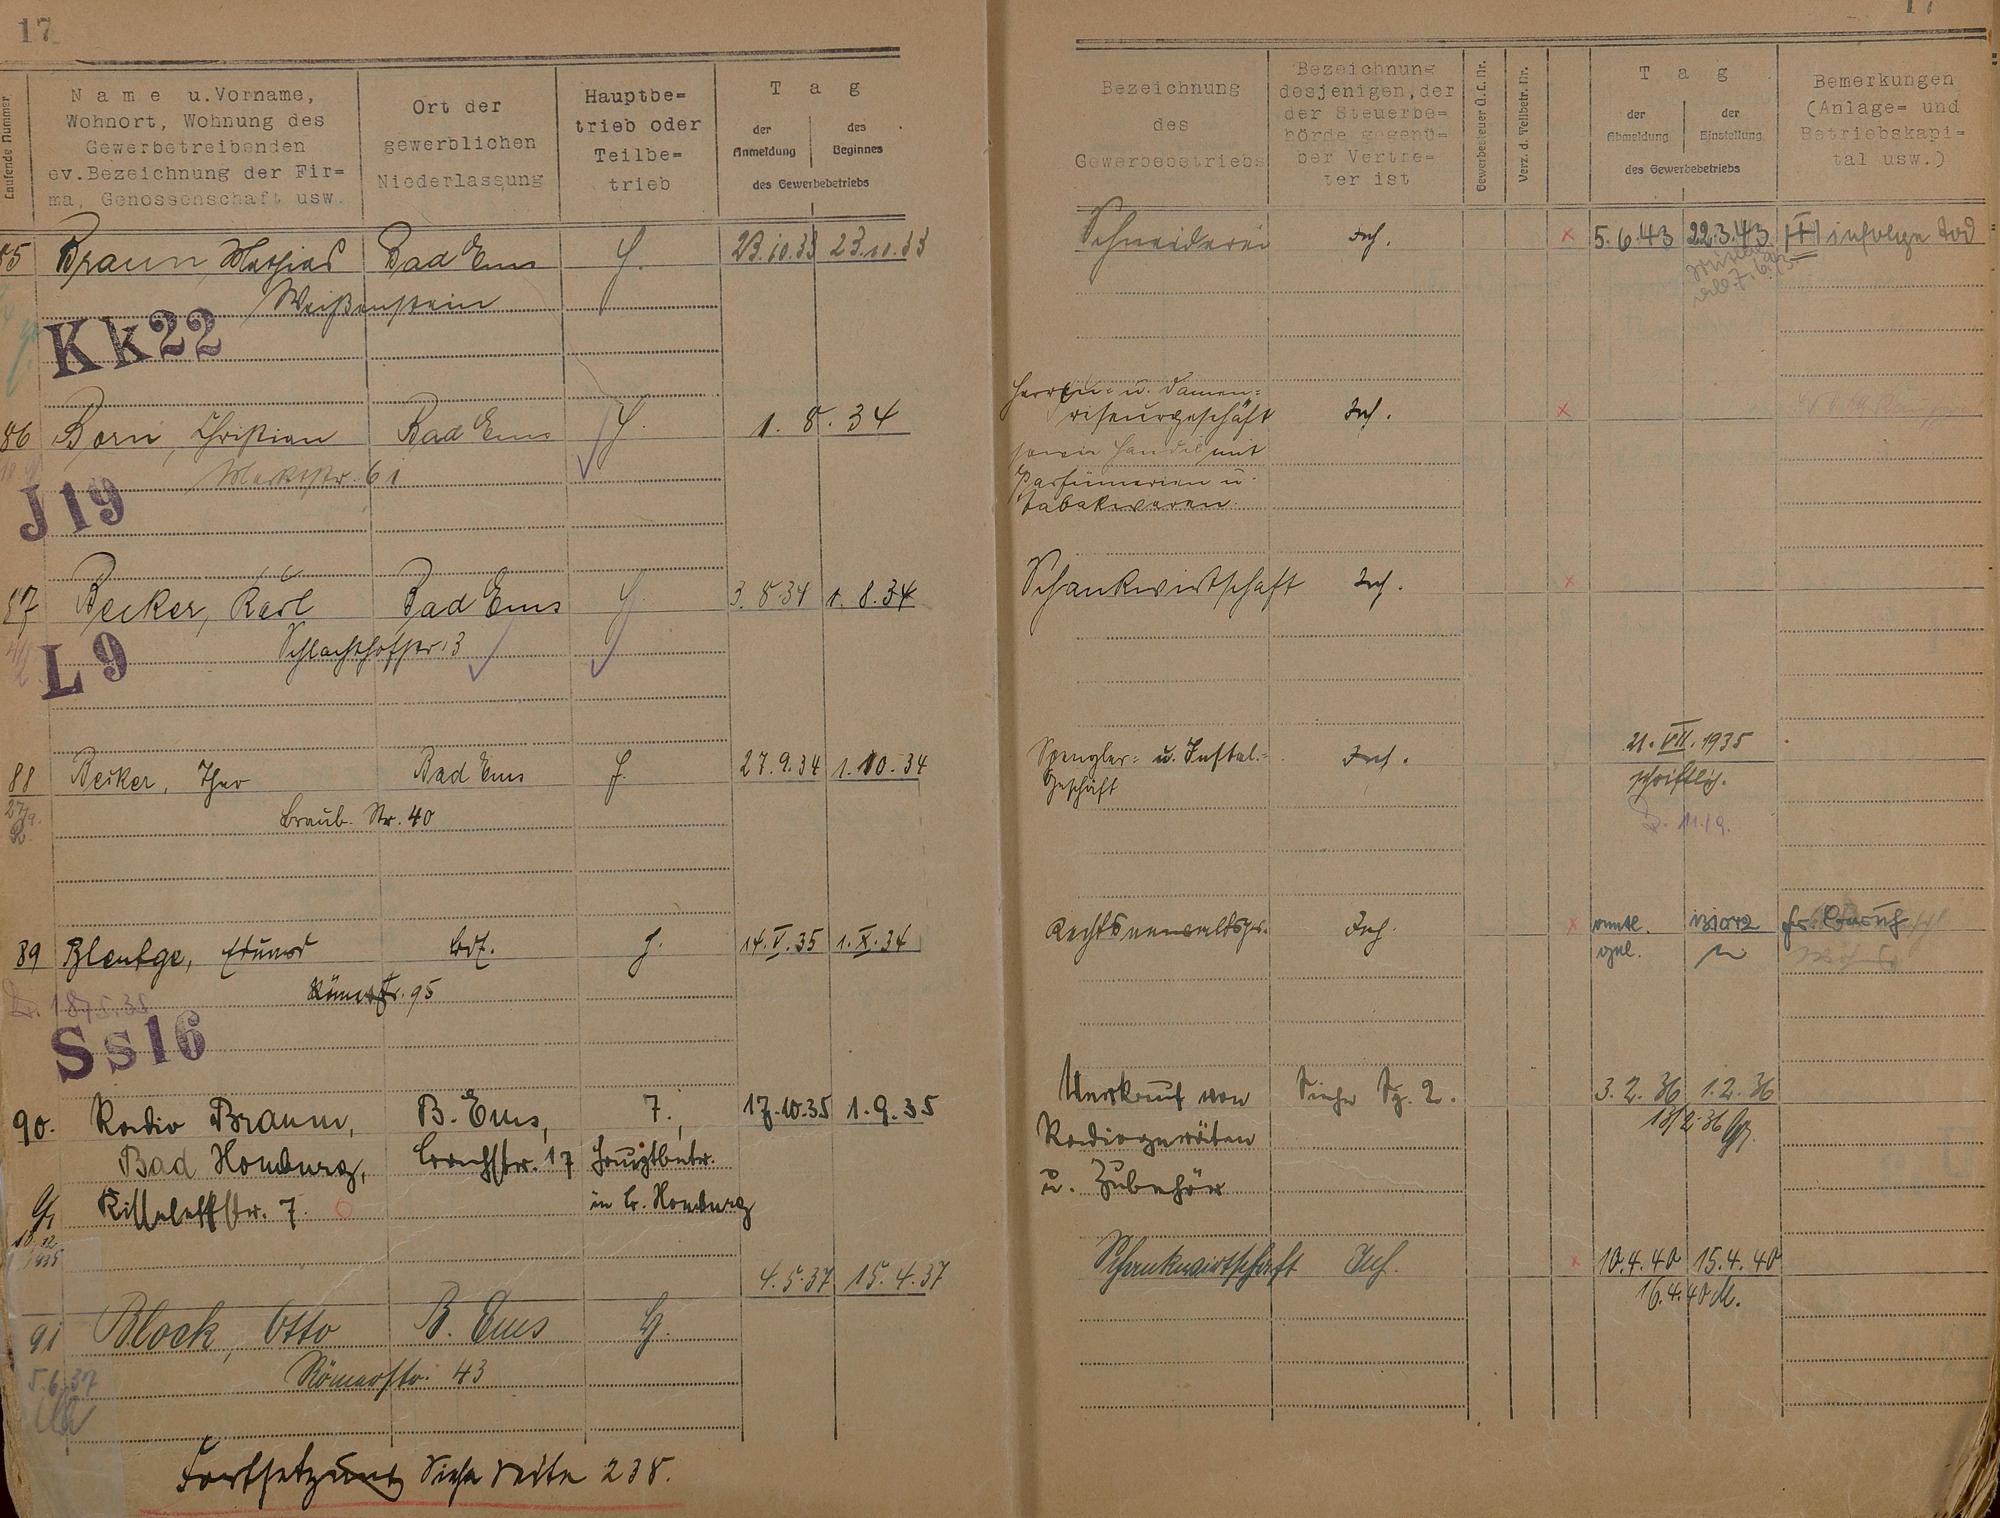 17
Laufende Nummer
Name u.Vorname,
Wohnort, Wohnung des
Gewerbetreibenden
ev.Bezeichnung der Fir=
ma, Genossenschaft usw.
Ort der
gewerblichen
Niederlassung
Hauptbe=
trieb oder
Teilbe=
trieb
Tag
der
Anmeldung
des
Beginnes
des Gewerbebetriebs
85 Braun Mathias Bad Ems H. 23.10.33 23.10.33
Weißenstein
Kk22
86 Born, Christian Bad Ems H. 1. 8. 34
Marktstr. 61
J19
87 Becker, Karl Bad Ems H. 3.8.34 1.8.34
Schlachthofstr. 3
L9
88 Becker, Theo Bad Ems H. 27.9.34 1.10.34
27/9.
Braub. Str. 40
89 Blentge, Eduard H. 14.V.35 1.X.34
Römerstr. 95
Ss16
90. Radio Braum, B. Ems, 7., 17.10.35 1.9.35
Bad Homburg, 17 Hauptbetr.
Kisseleffstr. 7. in B. Homburg
4.5.37 15.4.37
91 Block, Otto B. Ems H.
5.6.37 Römerstr. 43
Fortsetzung Siehe Seite 238.
17
Bezeichnung
des
Gewerbebetriebs
Bezeichnung
desjenigen,der
der Steuerbe=
hörde gegenü=
ber Vertre=
ter ist
Gewerbesteuer Ü.L.Nr.
Verz. d. Teilbetr. Nr.
Tag
der
Abmeldung
der
Einstellung
des Gewerbebetriebs
Bemerkungen
(Anlage= und
Betriebskapi=
tal usw.)
Schneiderei Inh. × 5.6.43 22.3.43 infolge Tod
Herren= u. Damen=
friseurgeschäft Inh. ×
sowie Handel mit
Parfümerien u.
Tabakwaren.
Schankwirtschaft Inh. ×
21.VII.1935
Spengler= u. Instal.= Inh.
Geschäft schriftlich.
11./9.
Rechtsanwaltspr. Inh. × amtl.
Verkauf von Siehe Sp. 2. 3.2.36 1.2.36
Radiogeräten 13/2.36
u. Zubehör
Schankwirtschaft Inh. × 10.4.40 15.4.40
16.4.40